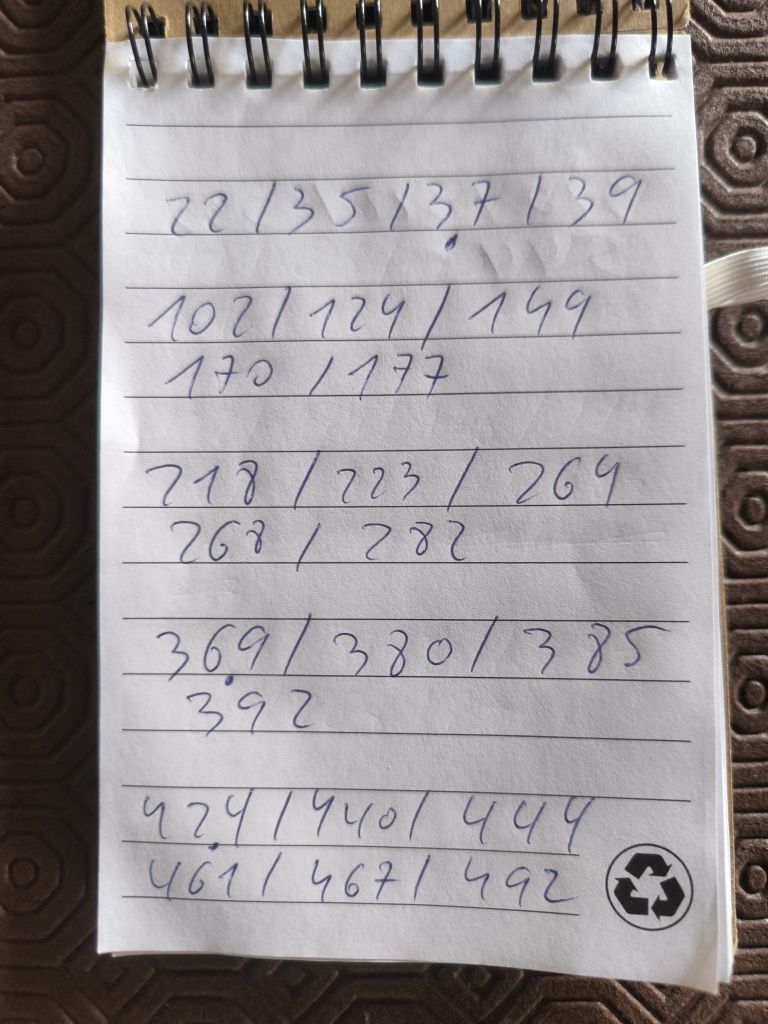 22/35/37/39
102/124/149
170/177
218/223/264
268/282
369/380/385
392
424/440/444
461/467/492